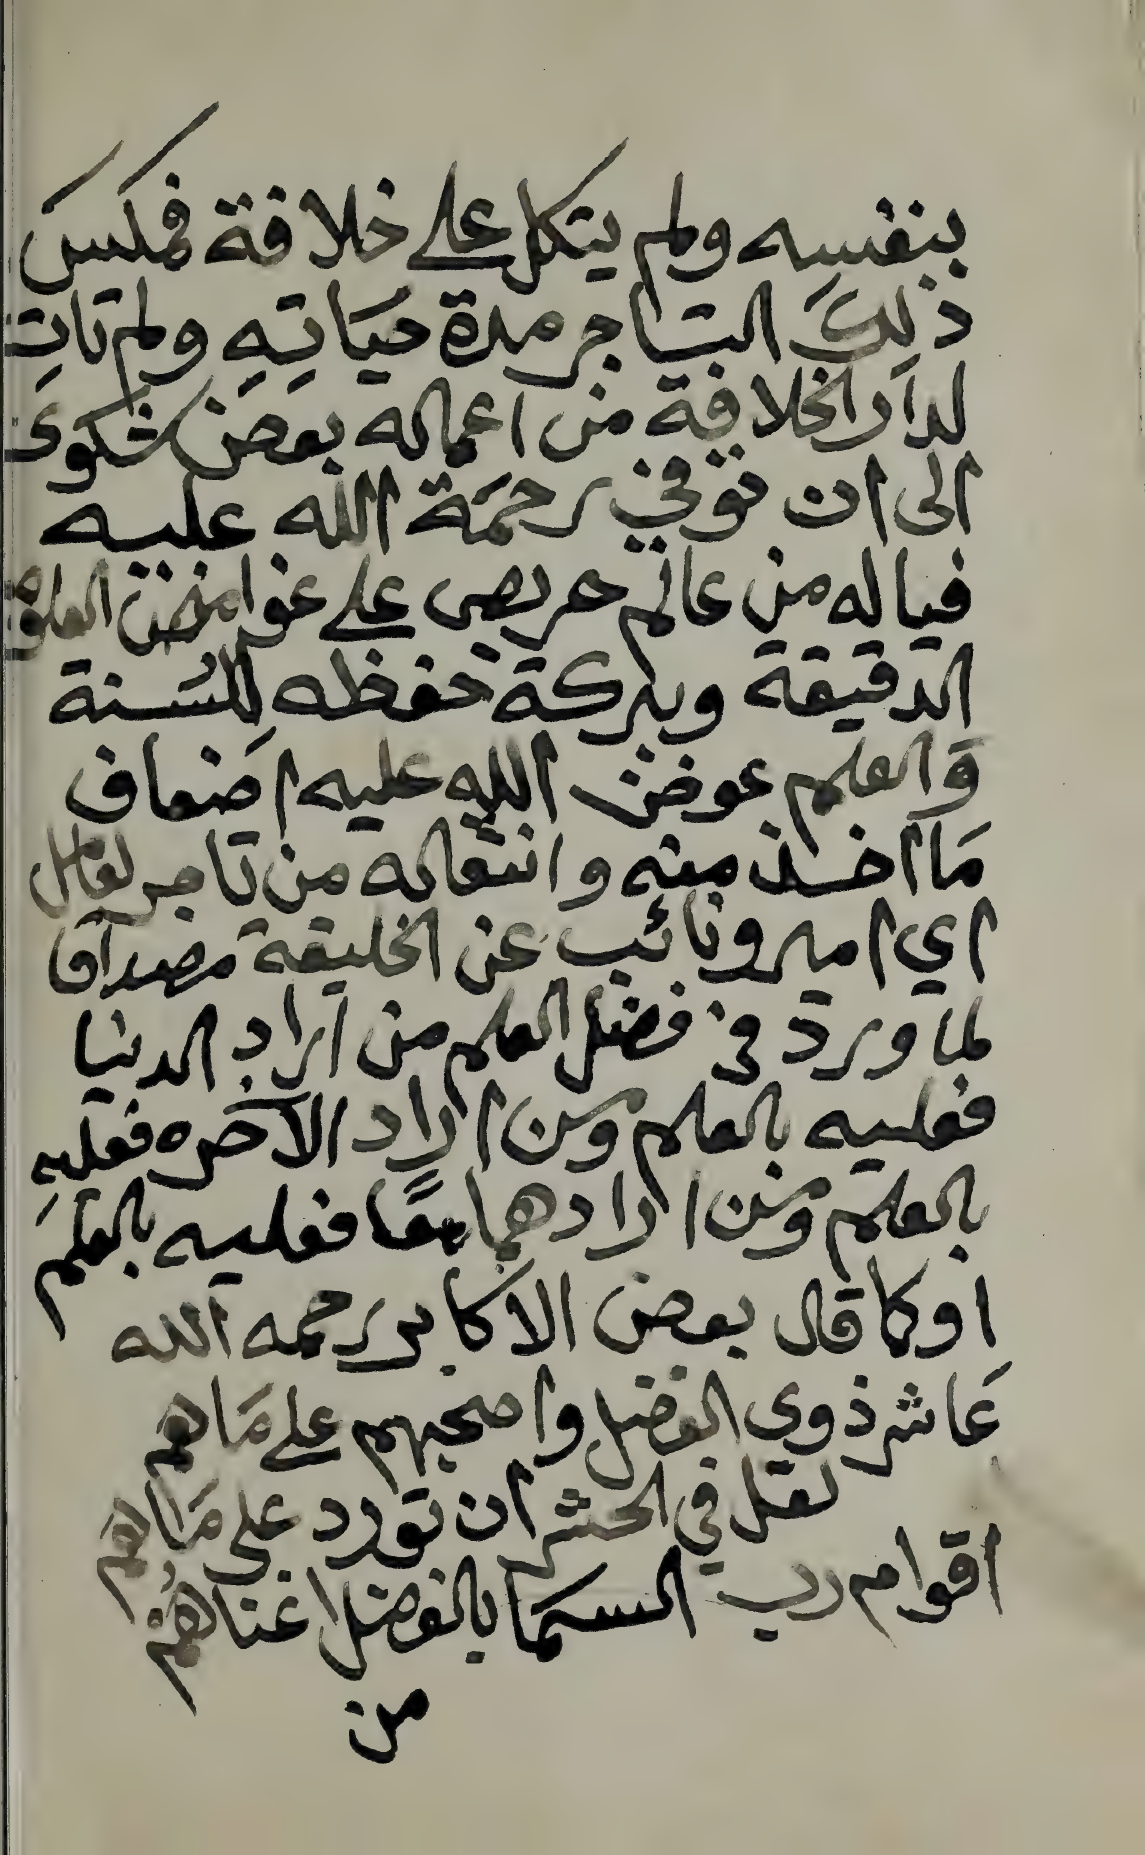 بنفسه ولم يتكل على خلافة فمكس
ذلكَ التاجر مدة حيَاتِهِ ولم تاتِ
لدار الخلافة من اعماله بعض شكوىَ
الى ان توفي رحمَة الله عليه
فياله من عالم حريص على غوامض العلوم
الدقيقة وببركة حفظه لِلسُنة
وَالعلم عوض الله عليه اضعاف
مَا اخذ منه وانتقاله من تاجر لعامل
اي امير ونائب عن الخليفة مصداقا
لما ورد في فضل العلم من اراد الدنيا
فعليه بالعلم ومن اراد الآخره فعليهِ
بالعلم ومن ارادهما معًا فعليه بالعلم
اوكما قال بعض الاكابر رحمه الله
عَاشر ذوي الفضل واصحبهم على مَاهم
لعل في الحشر ان تورد على مَاهم
اقوام رب السمَا بالفضل اغناهُمْ
من